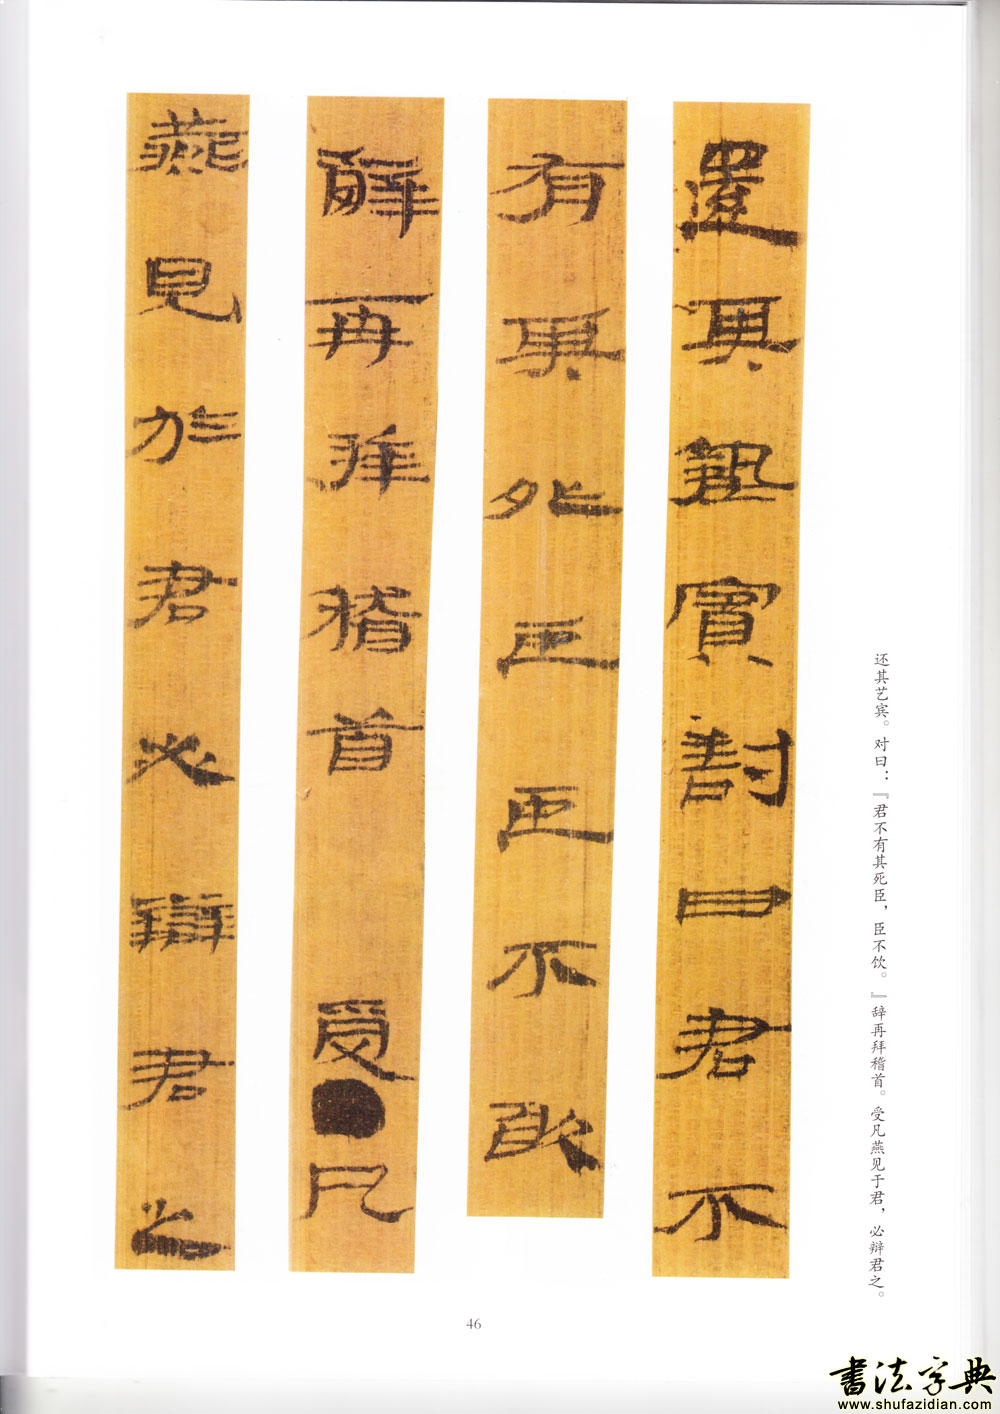 還其埶賓對曰君不
有其外臣臣不敢
辭再拜稽首 受●凡
燕見於君必辯君之
还其艺宾。对曰：『君不有其死臣，臣不饮。』辞再拜稽首。受凡燕见于君，必辩君之。
46
書法字典
www.shufazidian.com